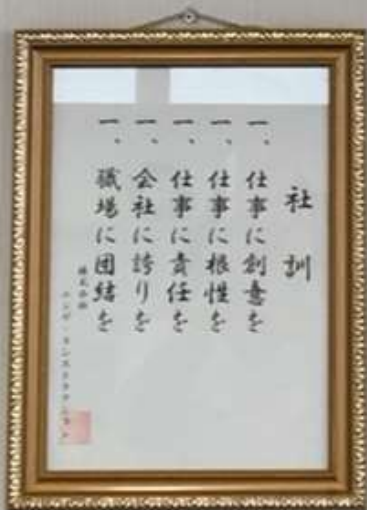 社訓
一、仕事に創意を
一、仕事に根性を
一、仕事に責任を
一、会社に誇りを
一、職場に団結を
株式会社